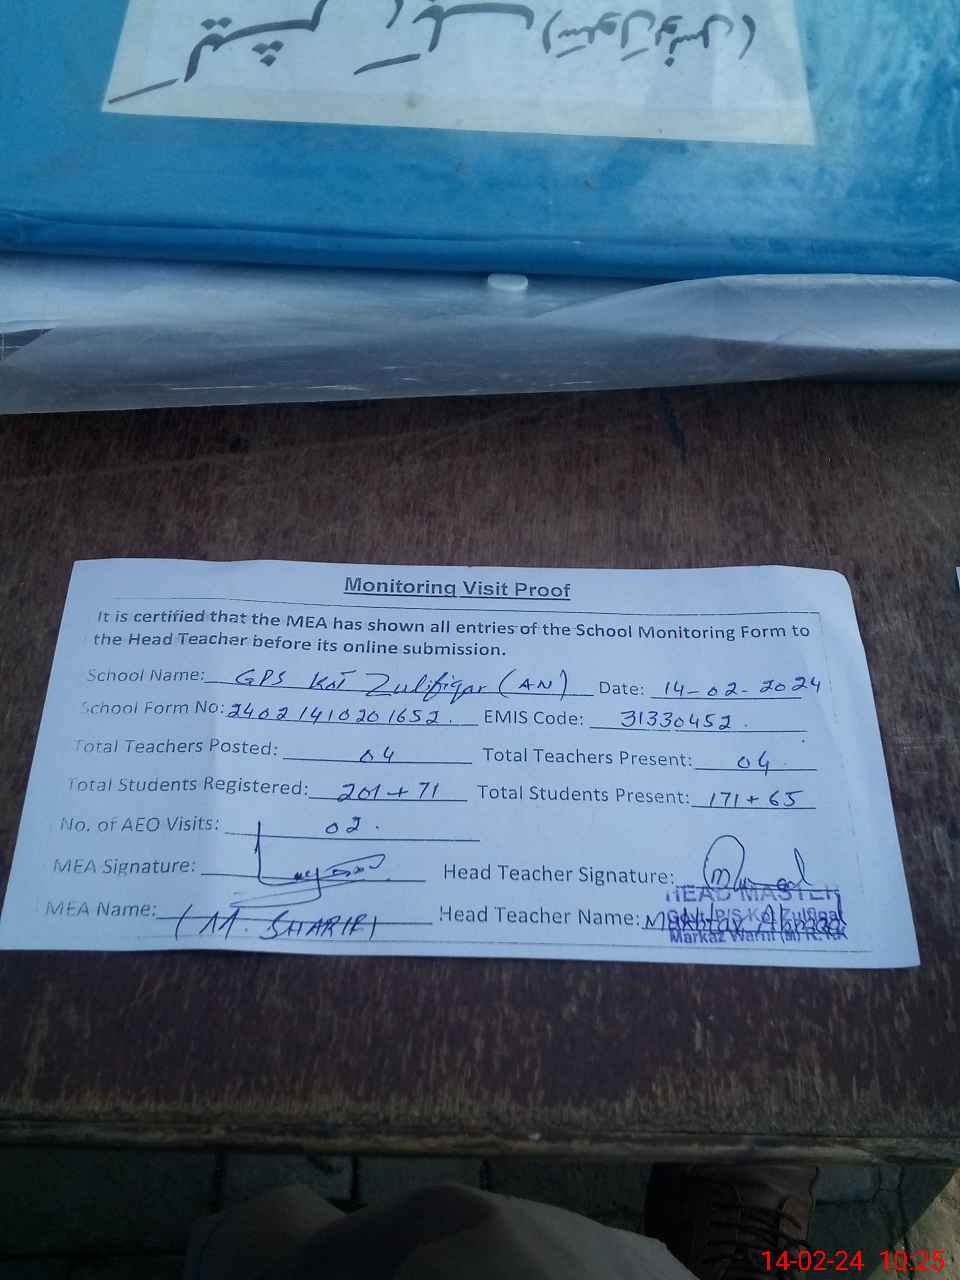 Monitoring Visit Proof
It is certified that the MEA has shown all entries of the School Monitoring Form to
the Head Teacher before its online submission.
School Name: GPS Kot Zulifiqar (AN) Date: 14-02-2024
School Form No: 24021410201652. EMIS Code: 31330452.
Total Teachers Posted: 04 Total Teachers Present: 04.
Total Students Registered: 201+71 Total Students Present: 171+65
No. of AEO Visits: 02.
MEA Signature: Head Teacher Signature:
HEAD MASTER
MEA Name: (M. SHARIF) Head Teacher Name:
Govt. P/S Kot Zulfiqar
Markaz (M) R.Y.K
14-02-24 10:25